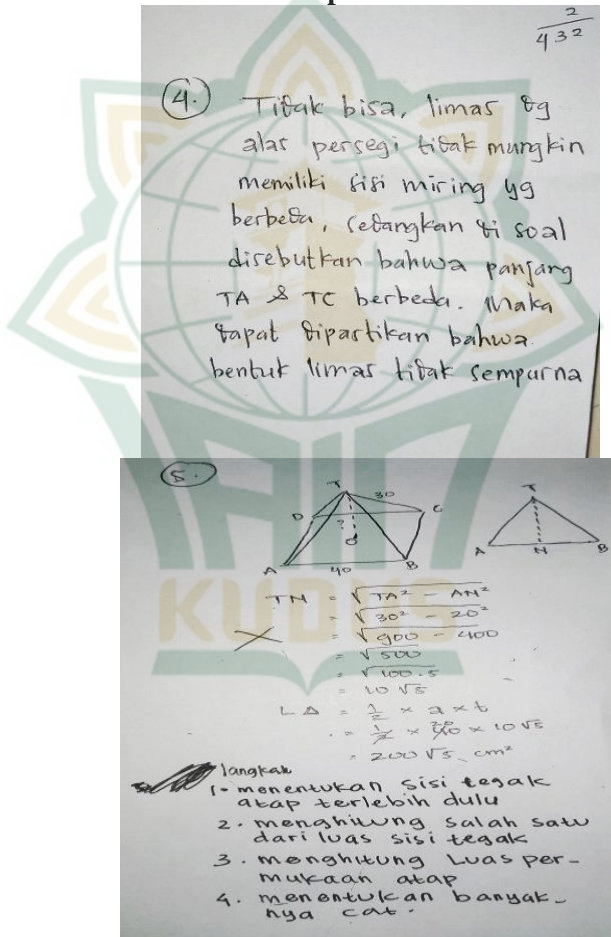 2
432
4.
Tidak bisa, limas dg
alas persegi tidak mungkin
memiliki sisi miring yg
berbeda, sedangkan di soal
disebutkan bahwa panjang
TA & TC berbeda. Maka
dapat dipastikan bahwa
bentuk limas tidak sempurna
5.
T 30 D C ? O A 40 B
T A N B
TN = √TA² - AN²
= √30² - 20²
= √900 - 400
= √500
= √100.5
= 10√5
L△ = 1/2 × a × t
= 1/2 × 40 20 × 10√5
= 200√5 cm²
langkah
1. menentukan sisi tegak
atap terlebih dulu
2. menghitung salah satu
dari luas sisi tegak
3. menghitung Luas per-
mukaan atap
4. menentukan banyak-
nya cat.
IAIN
KUDUS